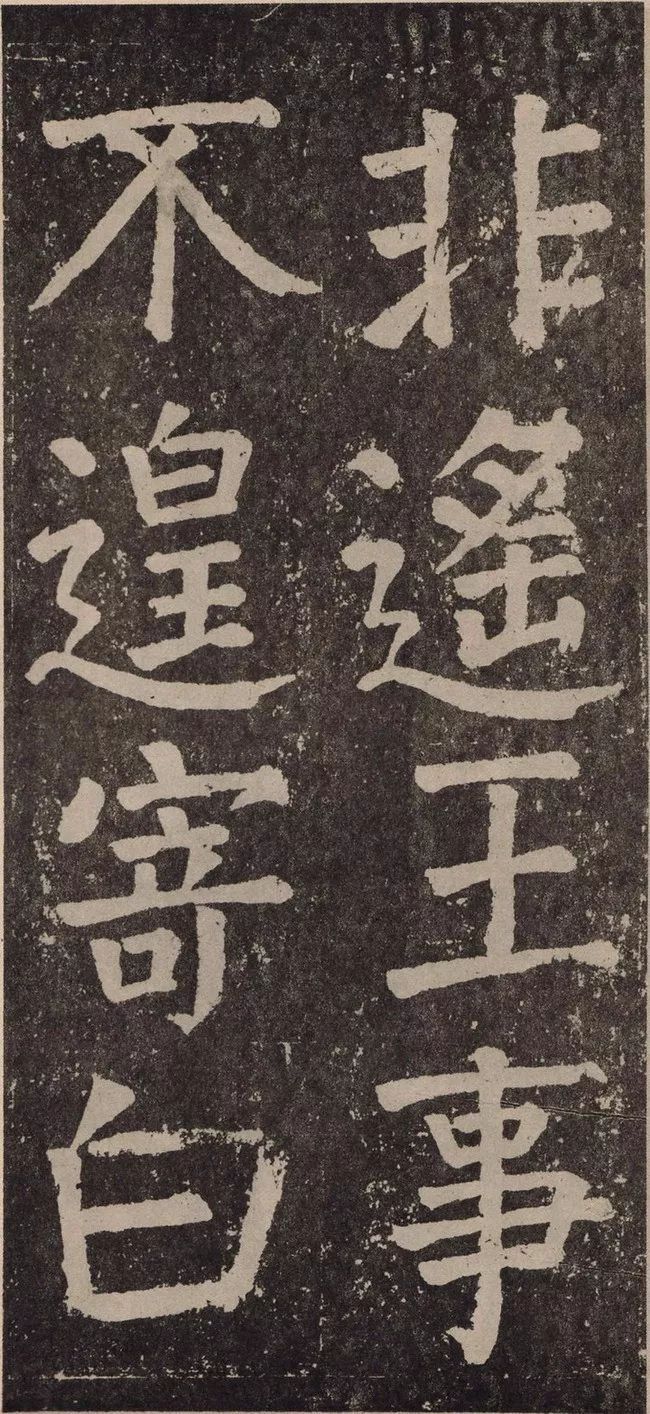 非遙王事
不遑寄白